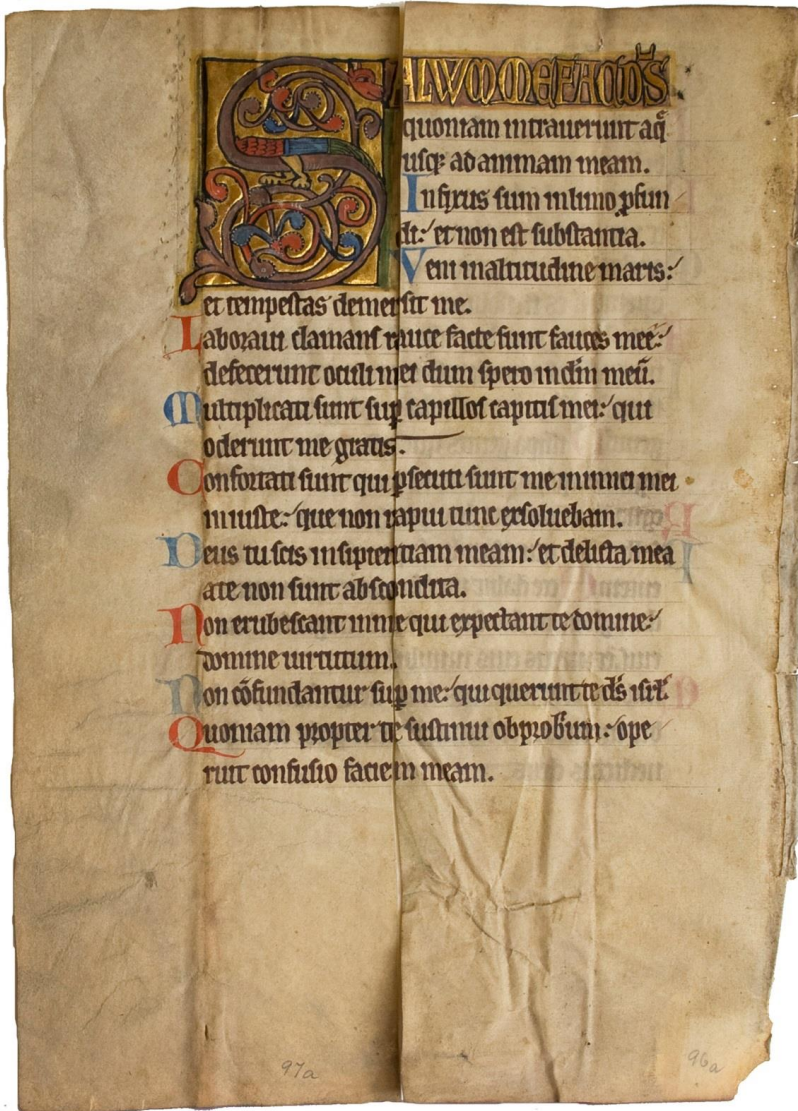 SALVUM ME FAC D̄S
quoniam intrauerunt aq̄
usq; ad animam meam.
Infixus sum in limo ꝓfun
di: et non est substantia.
Veni in altitudine maris:
et tempestas demersit me.
Laboraui clamans rauce facte sunt fauces mee:
defecerunt oculi mei dum spero in dm̄ meū.
Multiplicati sunt suꝑ capillos capitis mei: qui
oderunt me gratis.
Confortati sunt qui ꝑsecuti sunt me inimici mei
iniuste: que non rapui tunc exsoluebam.
Deus tu scis insipientiam meam: et delicta mea
a te non sunt abscondita.
Non erubescant in me qui expectant te domine:
domine uirtutum.
Non cōfundantur suꝑ me: qui querunt te ds̄ isrl̄.
Quoniam propter te sustinui obprobium: ope
ruit confusio faciem meam.
97a
96a